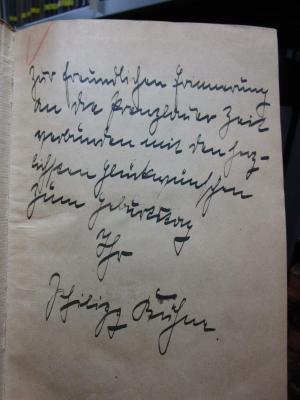 Zur freundlichen Erinnerung
an die Prenzlauer Zeit
verbunden mit den herz-
lichsten Glückwünschen
zum Geburtstag
Ihr
Philipp Kühne